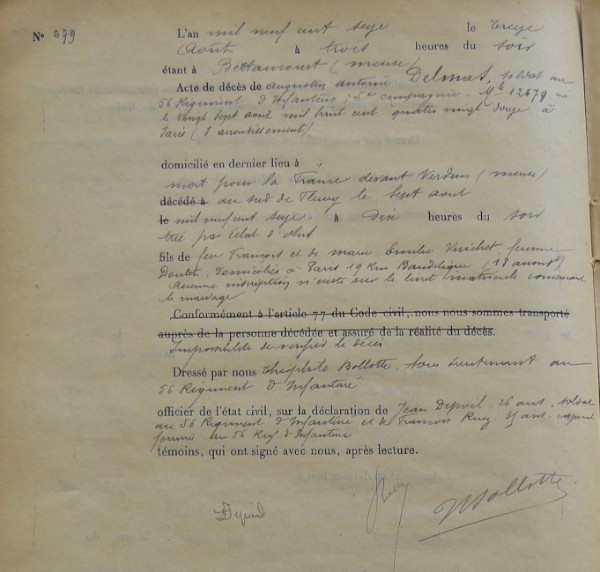 N° 679
L'an mil neuf cent seize le treize
Août à trois heures du soir
étant à Bettancourt (meuse)
Acte de décès de Delmas, soldat au
56 Régiment d'Infanterie, 5e compagnie. Mle 12679 né
le vingt sept août mil huit cent quatre vingt douze à
Paris (8 arrondissement)
domicilié en dernier lieu à
mort pour la France devant Verdun (meuse)
décédé à au sud de Fleury le sept août
le mil neuf cent seize à Dix heures du soir
tué par éclat d'obus
fils de feu François et de marie Emilie femme
domiciliés à Paris 19 Rue Baudelique (18 arrondt)
Aucune inscription n'existe sur le livret matricule concernant
le mariage
Conformément à l'article 77 du Code civil, nous nous sommes transporté
auprès de la personne décédée et assuré de la réalité du décès.
Impossibilité de vérifier le décès
Dressé par nous Théophile Bollotte, sous lieutenant au
56 Régiment d'Infanterie
officier de l'état civil, sur la déclaration de Jean 26 ans, soldat
au 56 Régiment d'Infanterie et de François ans, caporal
fourrier au 56 Rég d'Infanterie
témoins, qui ont signé avec nous, après lecture.
Bollotte